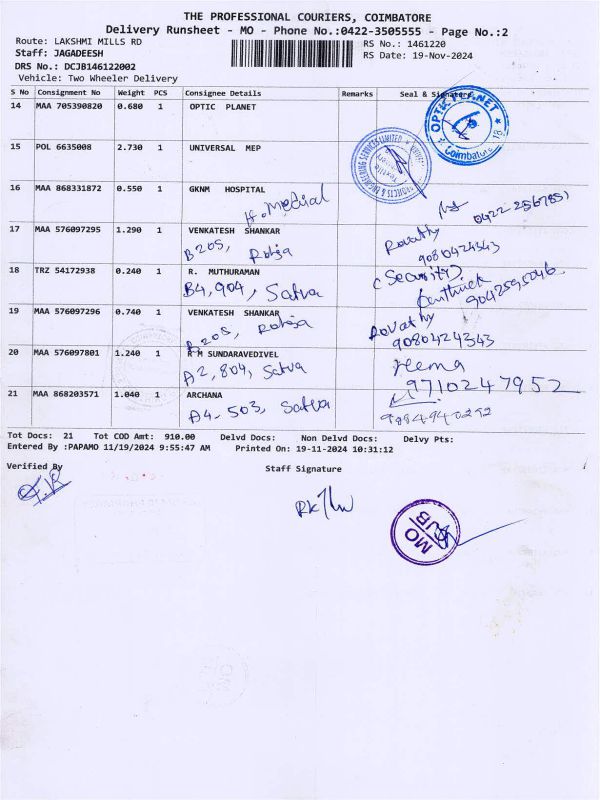 THE PROFESSIONAL COURIERS, COIMBATORE
Delivery Runsheet - MO - Phone No.:0422-3505555 - Page No.:2
Route: LAKSHMI MILLS RD RS No.: 1461220
Staff: JAGADEESH RS Date: 19-Nov-2024
DRS No.: DCJB146122002
Vehicle: Two Wheeler Delivery
S No Consignment No Weight PCS Consignee Details Remarks Seal & Signature
14 MAA 705390820 0.680 1 OPTIC PLANET
OPTIC PLANET
Coimbatore
15 POL 6635008 2.730 1 UNIVERSAL MEP
PROJECTS & ENGINEERING SERVICES LIMITED
16 MAA 868331872 0.550 1 GKNM HOSPITAL
17 MAA 576097295 1.290 1 VENKATESH SHANKAR
B205, Raheja Revathy
9080424343
(Security)
18 TRZ 54172938 0.240 1 R. MUTHURAMAN
B4, 904, Satva
9042595046
19 MAA 576097296 0.740 1 VENKATESH SHANKAR
B205, Raheja Revathy
9080424343
20 MAA 576097801 1.240 1 R M SUNDARAVEDIVEL
A2, 804, Satva Hema
9710247952
21 MAA 868203571 1.040 1 ARCHANA
A4-503, Satva
Tot Docs: 21 Tot COD Amt: 910.00 Delvd Docs: Non Delvd Docs: Delvy Pts:
Entered By :PAPAMO 11/19/2024 9:55:47 AM Printed On: 19-11-2024 10:31:12
Verified By Staff Signature
MO
HUB